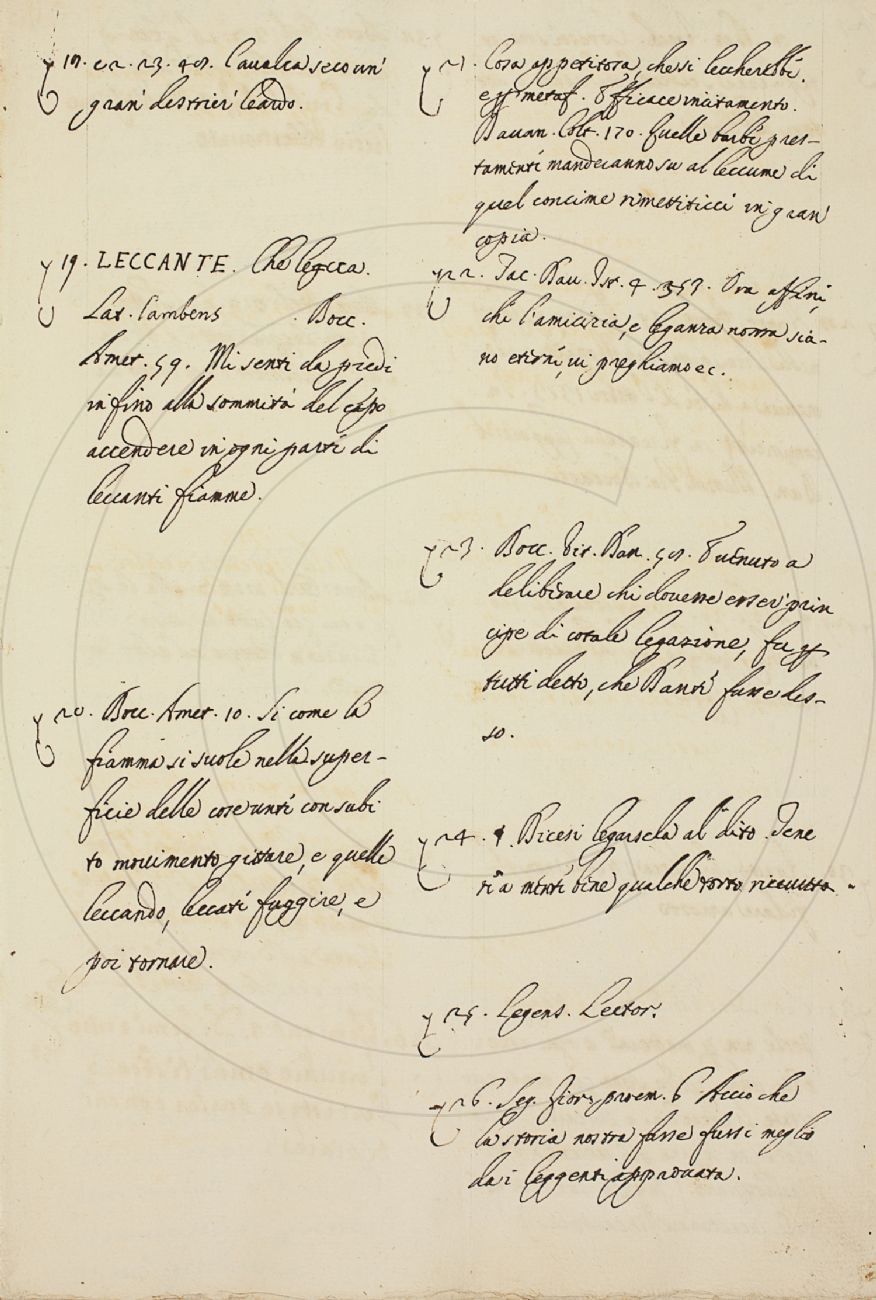 18. e 2. 23. 48. Cavalca seco un'
gran' destrier' leardo.
19. LECCANTE. Che lecca.
Lat. Lambens Bocc.
Amet. 59. Mi senti da piedi
infino alla sommità del capo
accendere in ogni parte di
leccanti fiamme.
20. Bocc. Amet. 10. Si come la
fiamma si suole nella super-
ficie delle cose unte con subi
to movimento gittare, e quelle
leccando, leccate fuggire, e
poi tornare.
21. Cosa appetitosa, che si leccherebbe.
e p metaf. Efficace incitamento.
Davan. Colt. 170. Quelle barbe pres-
tamente mandecanno su al leccume di
quel concime rimettiticci in gran'
copia.
22. Tac. Dav. Ist. 4. 353. Ora affine,
che l'amicizia, e leganza nostra sia-
no eterne, vi preghiamo ec.
23. Bocc. Vit. Dan. 58. E venuto a
deliberare chi dovesse esser' prin
cipe di cotale legazione, fu p
tutti detto, che Dante fusse des-
so.
24. Dicesi legarsela al dito. Tene
re a mente bene qualche torto ricevuto.
25. Legens. Lector.
26. Seg. Fior. proem. 6 Accio che
la storia nostra fusse fussi meglio
da i leggenti approvata.